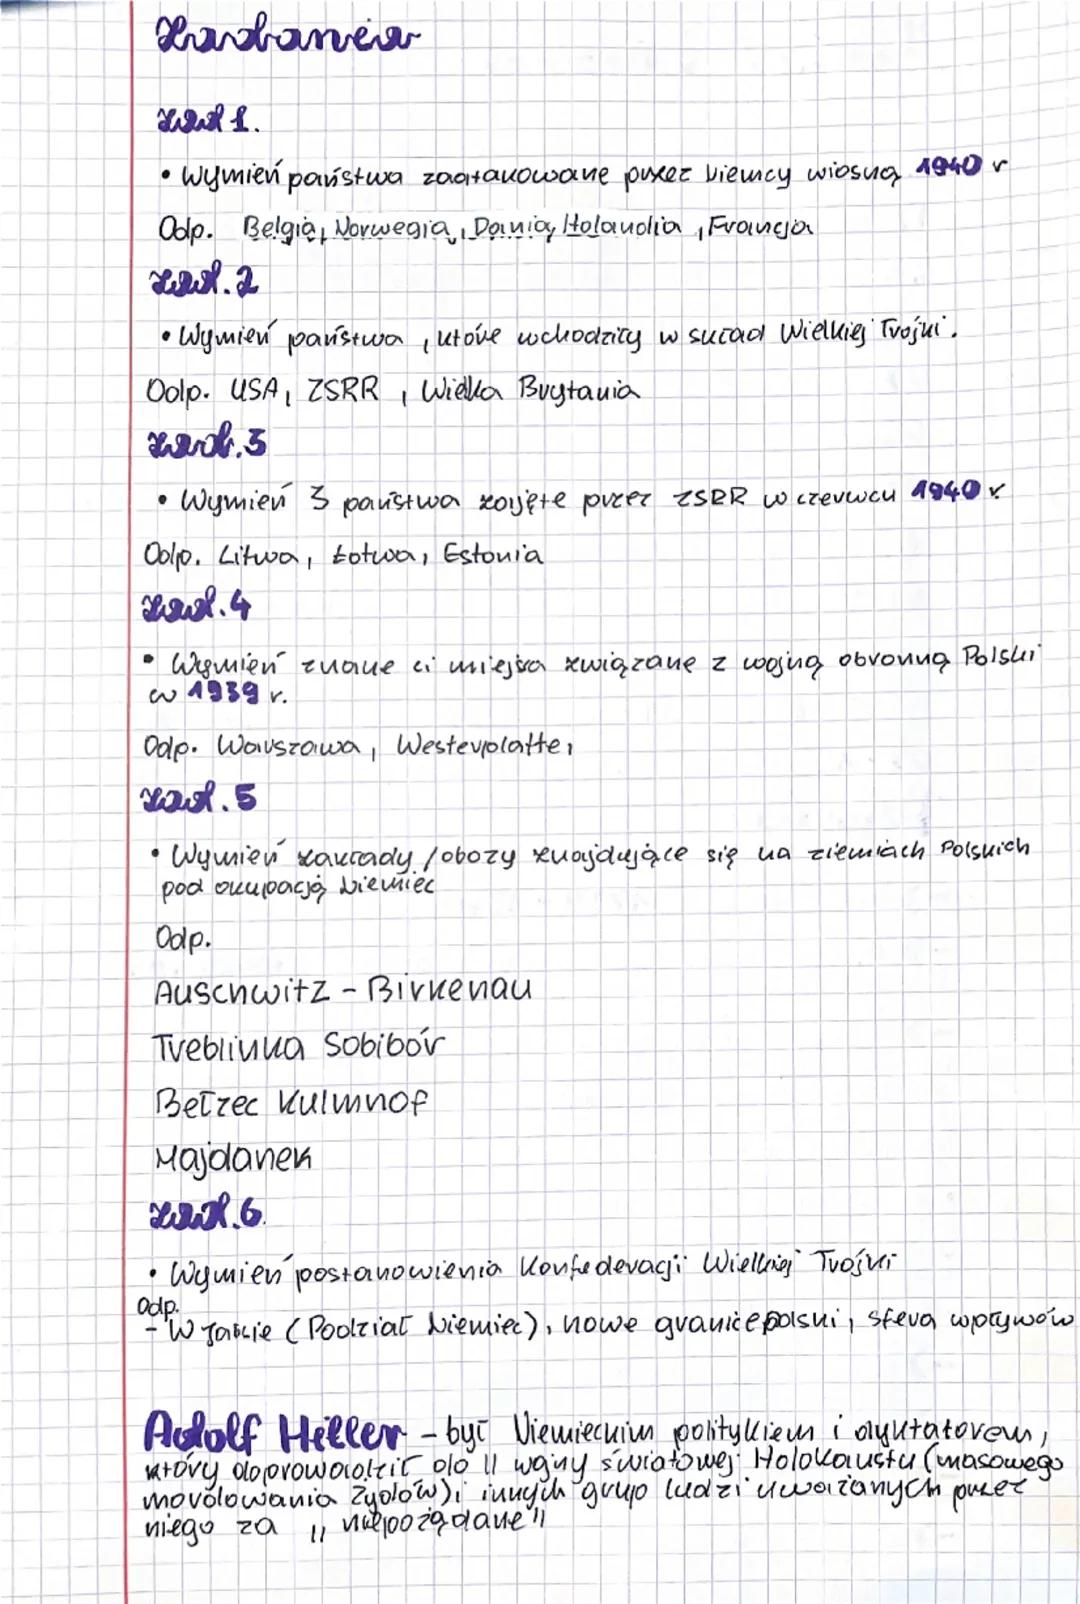 Zadania
zad 1.
• Wymień państwa zaatakowane przez Niemcy wiosną 1940 r
Odp. Belgia, Norwegia, Dania, Holandia, Francja
zad. 2
• Wymień państwa, które wchodziły w skład Wielkiej Trójki.
Odp. USA, ZSRR, Wielka Brytania
zad. 3
• Wymień 3 państwa zajęte przez ZSRR w czerwcu 1940 r
Odp. Litwa, Łotwa, Estonia
zad. 4
• Wymień znane ci miejsca związane z wojną obronną Polski
w 1939 r.
Odp. Warszawa, Westerplatte,
zad. 5
• Wymień zakłady / obozy znajdujące się na ziemiach Polskich
pod okupacją Niemiec
Odp.
Auschwitz - Birkenau
Treblinka Sobibór
Bełzec Kulmnof
Majdanek
zad. 6.
• Wymień postanowienia Konfederacji Wielkiej Trójki
Odp.
- W Jałcie (Podział Niemiec), nowe granice polski, sfera wpływów
Adolf Hitler - był Niemieckim politykiem i dyktatorem,
który doprowadził do II wojny światowej Holokaustu (masowego
mordowania Żydów) i innych grup ludzi uważanych przez
niego za „niepożądane"